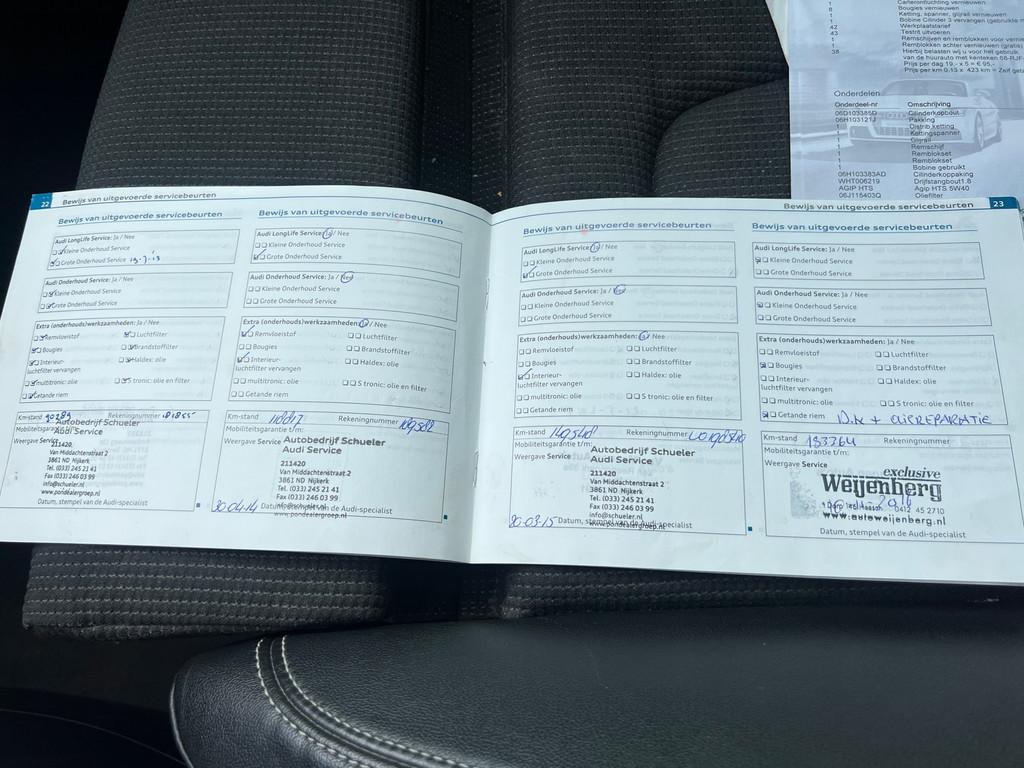 1 Carterontluchting vernieuwen
8 Bougies vernieuwen
1 Ketting, spanner, glijrail vernieuwen
1 Bobine Cilinder 3 vervangen (gebruikte
42 Werkplaatstarief
43 Testrit uitvoeren
1 Remschijven en remblokken voor
1 Remblokken achter vernieuwen (gratis)
38 Hierbij belasten wij u voor het gebruik
van de huurauto met kenteken
Prijs per dag 19,- x 5 = € 95,-
Prijs per km 0.13 x 423 km =
Onderdelen
Onderdeel-nr Omschrijving
06D103385D Cilinderkopbout
06H103121J Pakking
1 Distrib.ketting
1 Kettingspanner
1 Glijrail
1 Remschijf
1 Remblokset
1 Remblokset
1 Bobine gebruikt
06H103383AD Cilinderkoppakking
WHT006219 Drijfstangbout1.8
AGIP HTS Agip HTS 5W40
06J115403Q Oliefilter
22 Bewijs van uitgevoerde servicebeurten
Bewijs van uitgevoerde servicebeurten
Audi LongLife Service: Ja / Nee
Kleine Onderhoud Service
Grote Onderhoud Service
Audi Onderhoud Service: Ja / Nee
Kleine Onderhoud Service
Grote Onderhoud Service
Extra (onderhouds)werkzaamheden: Ja / Nee
Remvloeistof Luchtfilter
Bougies Brandstoffilter
Interieur- Haldex: olie
luchtfilter vervangen
multitronic: olie S tronic: olie en filter
Getande riem
Km-stand 90289 Rekeningnummer
Mobiliteitsgarantie t/m:
Autobedrijf Schueler
Weergave Service
Audi Service
211420
Van Middachtenstraat 2
3861 ND Nijkerk
Tel. (033) 245 21 41
Fax (033) 246 03 99
www.pondealergroep.nl
Datum, stempel van de Audi-specialist
Bewijs van uitgevoerde servicebeurten
Audi LongLife Service: Ja / Nee
Kleine Onderhoud Service
Grote Onderhoud Service
Audi Onderhoud Service: Ja / Nee
Kleine Onderhoud Service
Grote Onderhoud Service
Extra (onderhouds)werkzaamheden: Ja / Nee
Remvloeistof Luchtfilter
Bougies Brandstoffilter
Interieur- Haldex: olie
luchtfilter vervangen
multitronic: olie S tronic: olie en filter
Getande riem
Km-stand Rekeningnummer
Mobiliteitsgarantie t/m:
Weergave Service
Autobedrijf Schueler
Audi Service
211420
Van Middachtenstraat 2
3861 ND Nijkerk
Tel. (033) 245 21 41
Fax (033) 246 03 99
info@schueler.nl
www.pondealergroep.nl
30.04.14 Datum, stempel van de Audi-specialist
Bewijs van uitgevoerde servicebeurten 23
Bewijs van uitgevoerde servicebeurten
Audi LongLife Service: Ja / Nee
Kleine Onderhoud Service
Grote Onderhoud Service
Audi Onderhoud Service: Ja / Nee
Kleine Onderhoud Service
Grote Onderhoud Service
Extra (onderhouds)werkzaamheden: Ja / Nee
Remvloeistof Luchtfilter
Bougies Brandstoffilter
Interieur- Haldex: olie
luchtfilter vervangen
multitronic: olie S tronic: olie en filter
Getande riem
Km-stand Rekeningnummer
Mobiliteitsgarantie t/m:
Weergave Service
Autobedrijf Schueler
Audi Service
211420
Van Middachtenstraat 2
3861 ND Nijkerk
Tel. (033) 245 21 41
Fax (033) 246 03 99
info@schueler.nl
www.pondealergroep.nl
30-03-15 Datum, stempel van de Audi-specialist
Bewijs van uitgevoerde servicebeurten
Audi LongLife Service: Ja / Nee
Kleine Onderhoud Service
Grote Onderhoud Service
Audi Onderhoud Service: Ja / Nee
Kleine Onderhoud Service
Grote Onderhoud Service
Extra (onderhouds)werkzaamheden: Ja / Nee
Remvloeistof Luchtfilter
Bougies Brandstoffilter
Interieur- Haldex: olie
luchtfilter vervangen
multitronic: olie S tronic: olie en filter
Getande riem D.K + OLIEREPARATIE
Km-stand 183764 Rekeningnummer
Mobiliteitsgarantie t/m:
Weergave Service
exclusive
Weijenberg
0412 45 2710
www.autoweijenberg.nl
Datum, stempel van de Audi-specialist